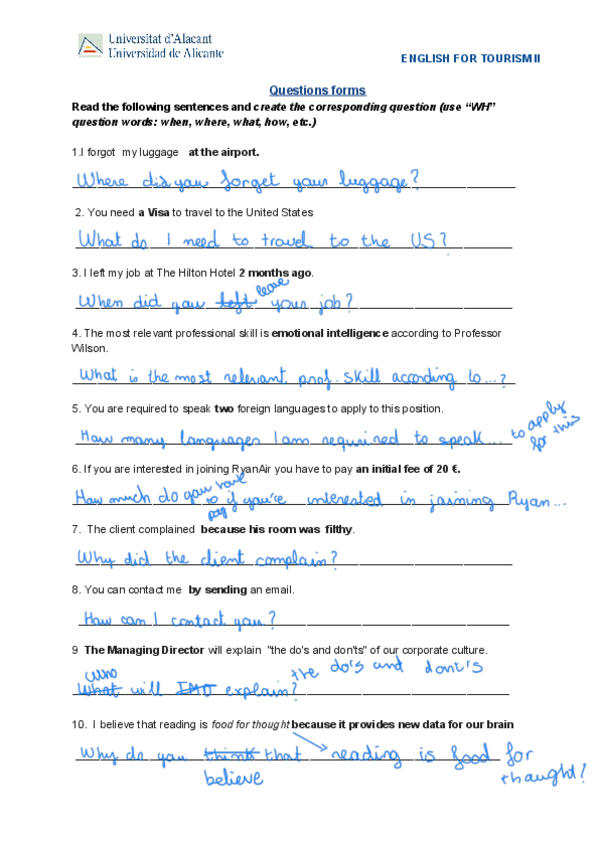 Universitat d'Alacant
Universidad de Alicante
ENGLISH FOR TOURISMII
Questions forms
Read the following sentences and create the corresponding question (use “WH”
question words: when, where, what, how, etc.)
1.I forgot my luggage at the airport.
Where did you forget your luggage?
2. You need a Visa to travel to the United States
What do I need to travel to the US?
3. I left my job at The Hilton Hotel 2 months ago.
leave
When did you left your job?
4. The most relevant professional skill is emotional intelligence according to Professor
Wilson.
What is the most relevant prof. skill according to...?
5. You are required to speak two foreign languages to apply to this position.
How many languages I am required to speak... to apply
for this
6. If you are interested in joining RyanAir you have to pay an initial fee of 20 €.
How much do you have to if you're interested in joining Ryan...
pay
7. The client complained because his room was filthy.
Why did the client complain?
8. You can contact me by sending an email.
How can I contact you?
9 The Managing Director will explain "the do's and don'ts" of our corporate culture.
Who the do's and dont's
What will explain?
10. I believe that reading is food for thought because it provides new data for our brain
Why do you think that reading is food for
believe thought?